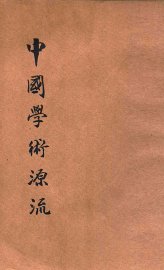 中國學術源流